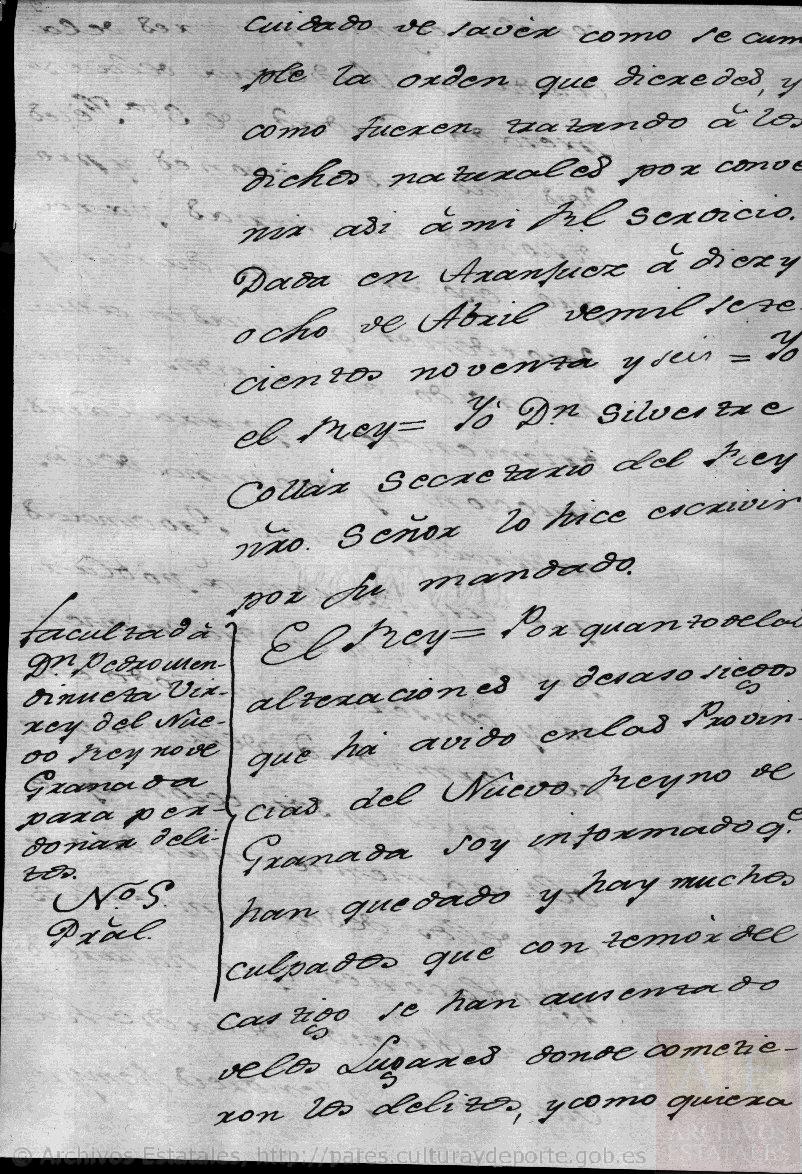 cuidado de savér como se cum
ple la orden que dieredes, y
como fueren tratando â los
dichos naturales por conve
nir asi â mi Rl. Servicio.
Dada en Aranjuez â diez y
ocho de Abril de mil sete
cientos noventa y seis = Yo
el Rey = Yo Dn. Silvestre
Collar Secretario del Rey
ñro. Señor lo hice escrivir
por su mandado.
facultad â
Dn. Pedro Men-
dinueta Vir-
rey del Nue-
vo Reyno de
Granada
para per-
donar deli-
tos.
No. 5.
Prâl.
El Rey = Por quanto de las
alteraciones y desasosiegos
que há avido en las Provin-
cias del Nuevo Reyno de
Granada soy informado qe.
han quedado y hay muchos
culpados que con temór del
castigo se han ausentado
de los Lugares donde cometie-
ron los delitos, y como quiera
© Archivos Estatales, http://pares.culturaydeporte.gob.es
ARCHIVOS
ESTATALES